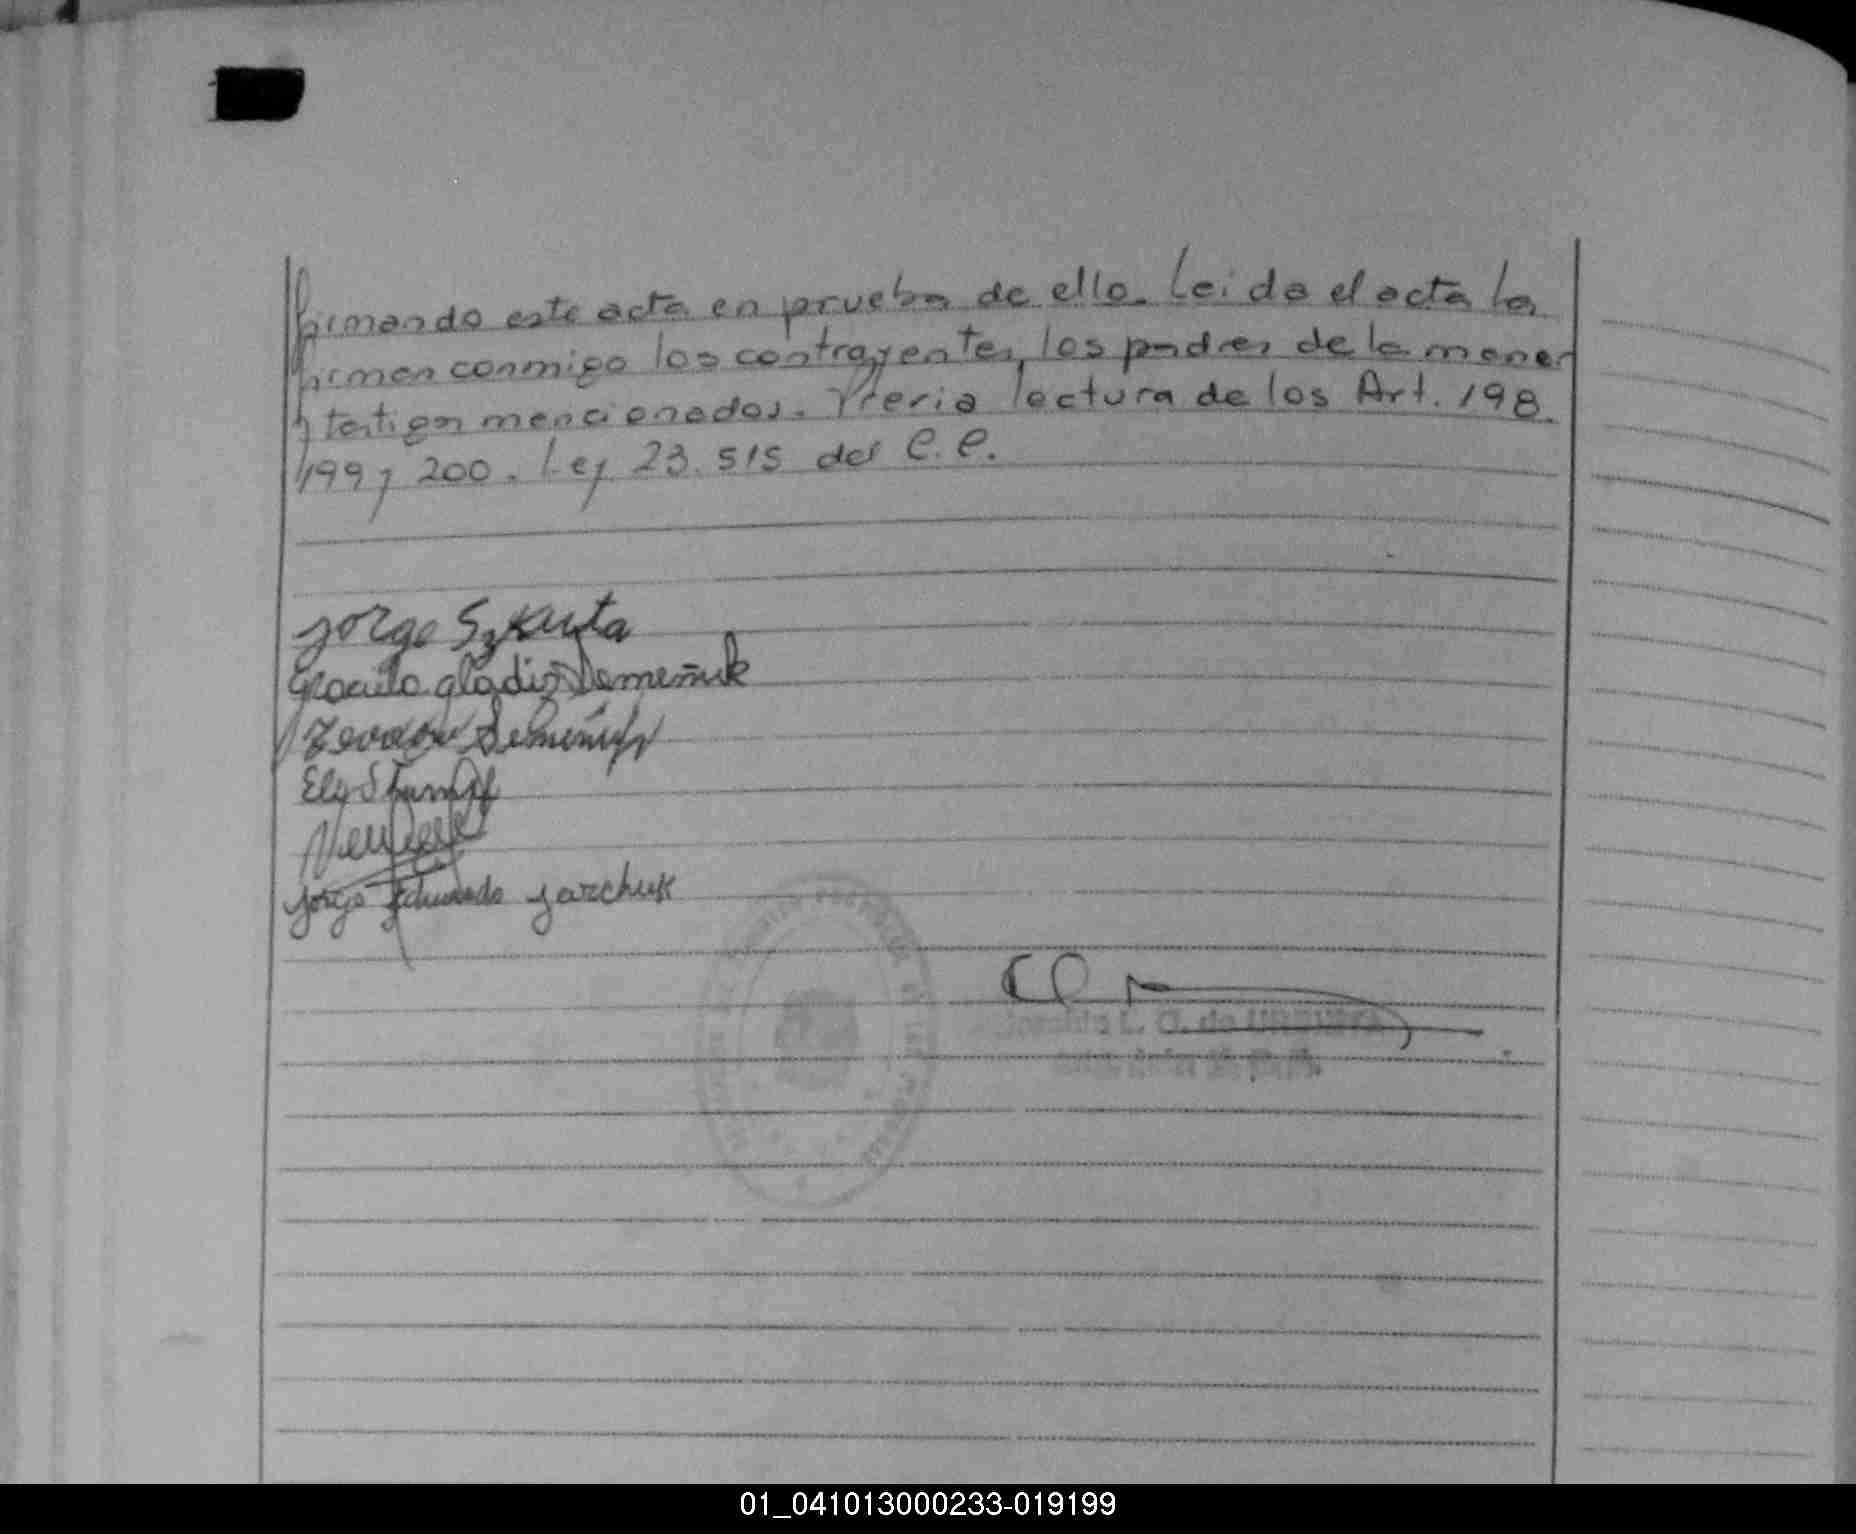 firmando este acta en prueba de ello. Leida el acta la
firman conmigo los contrayentes, los padres de la menor
y testigos mencionados. Previa lectura de los Art. 198.
199 y 200. Ley 23.515 del C.C.
Jorge Szkuta
Graciela gladis Demeñuk
Demeñuk
Ely Stumpf
Jorge Eduardo Jarchuk
C. de URQUIZA
01_041013000233-019199